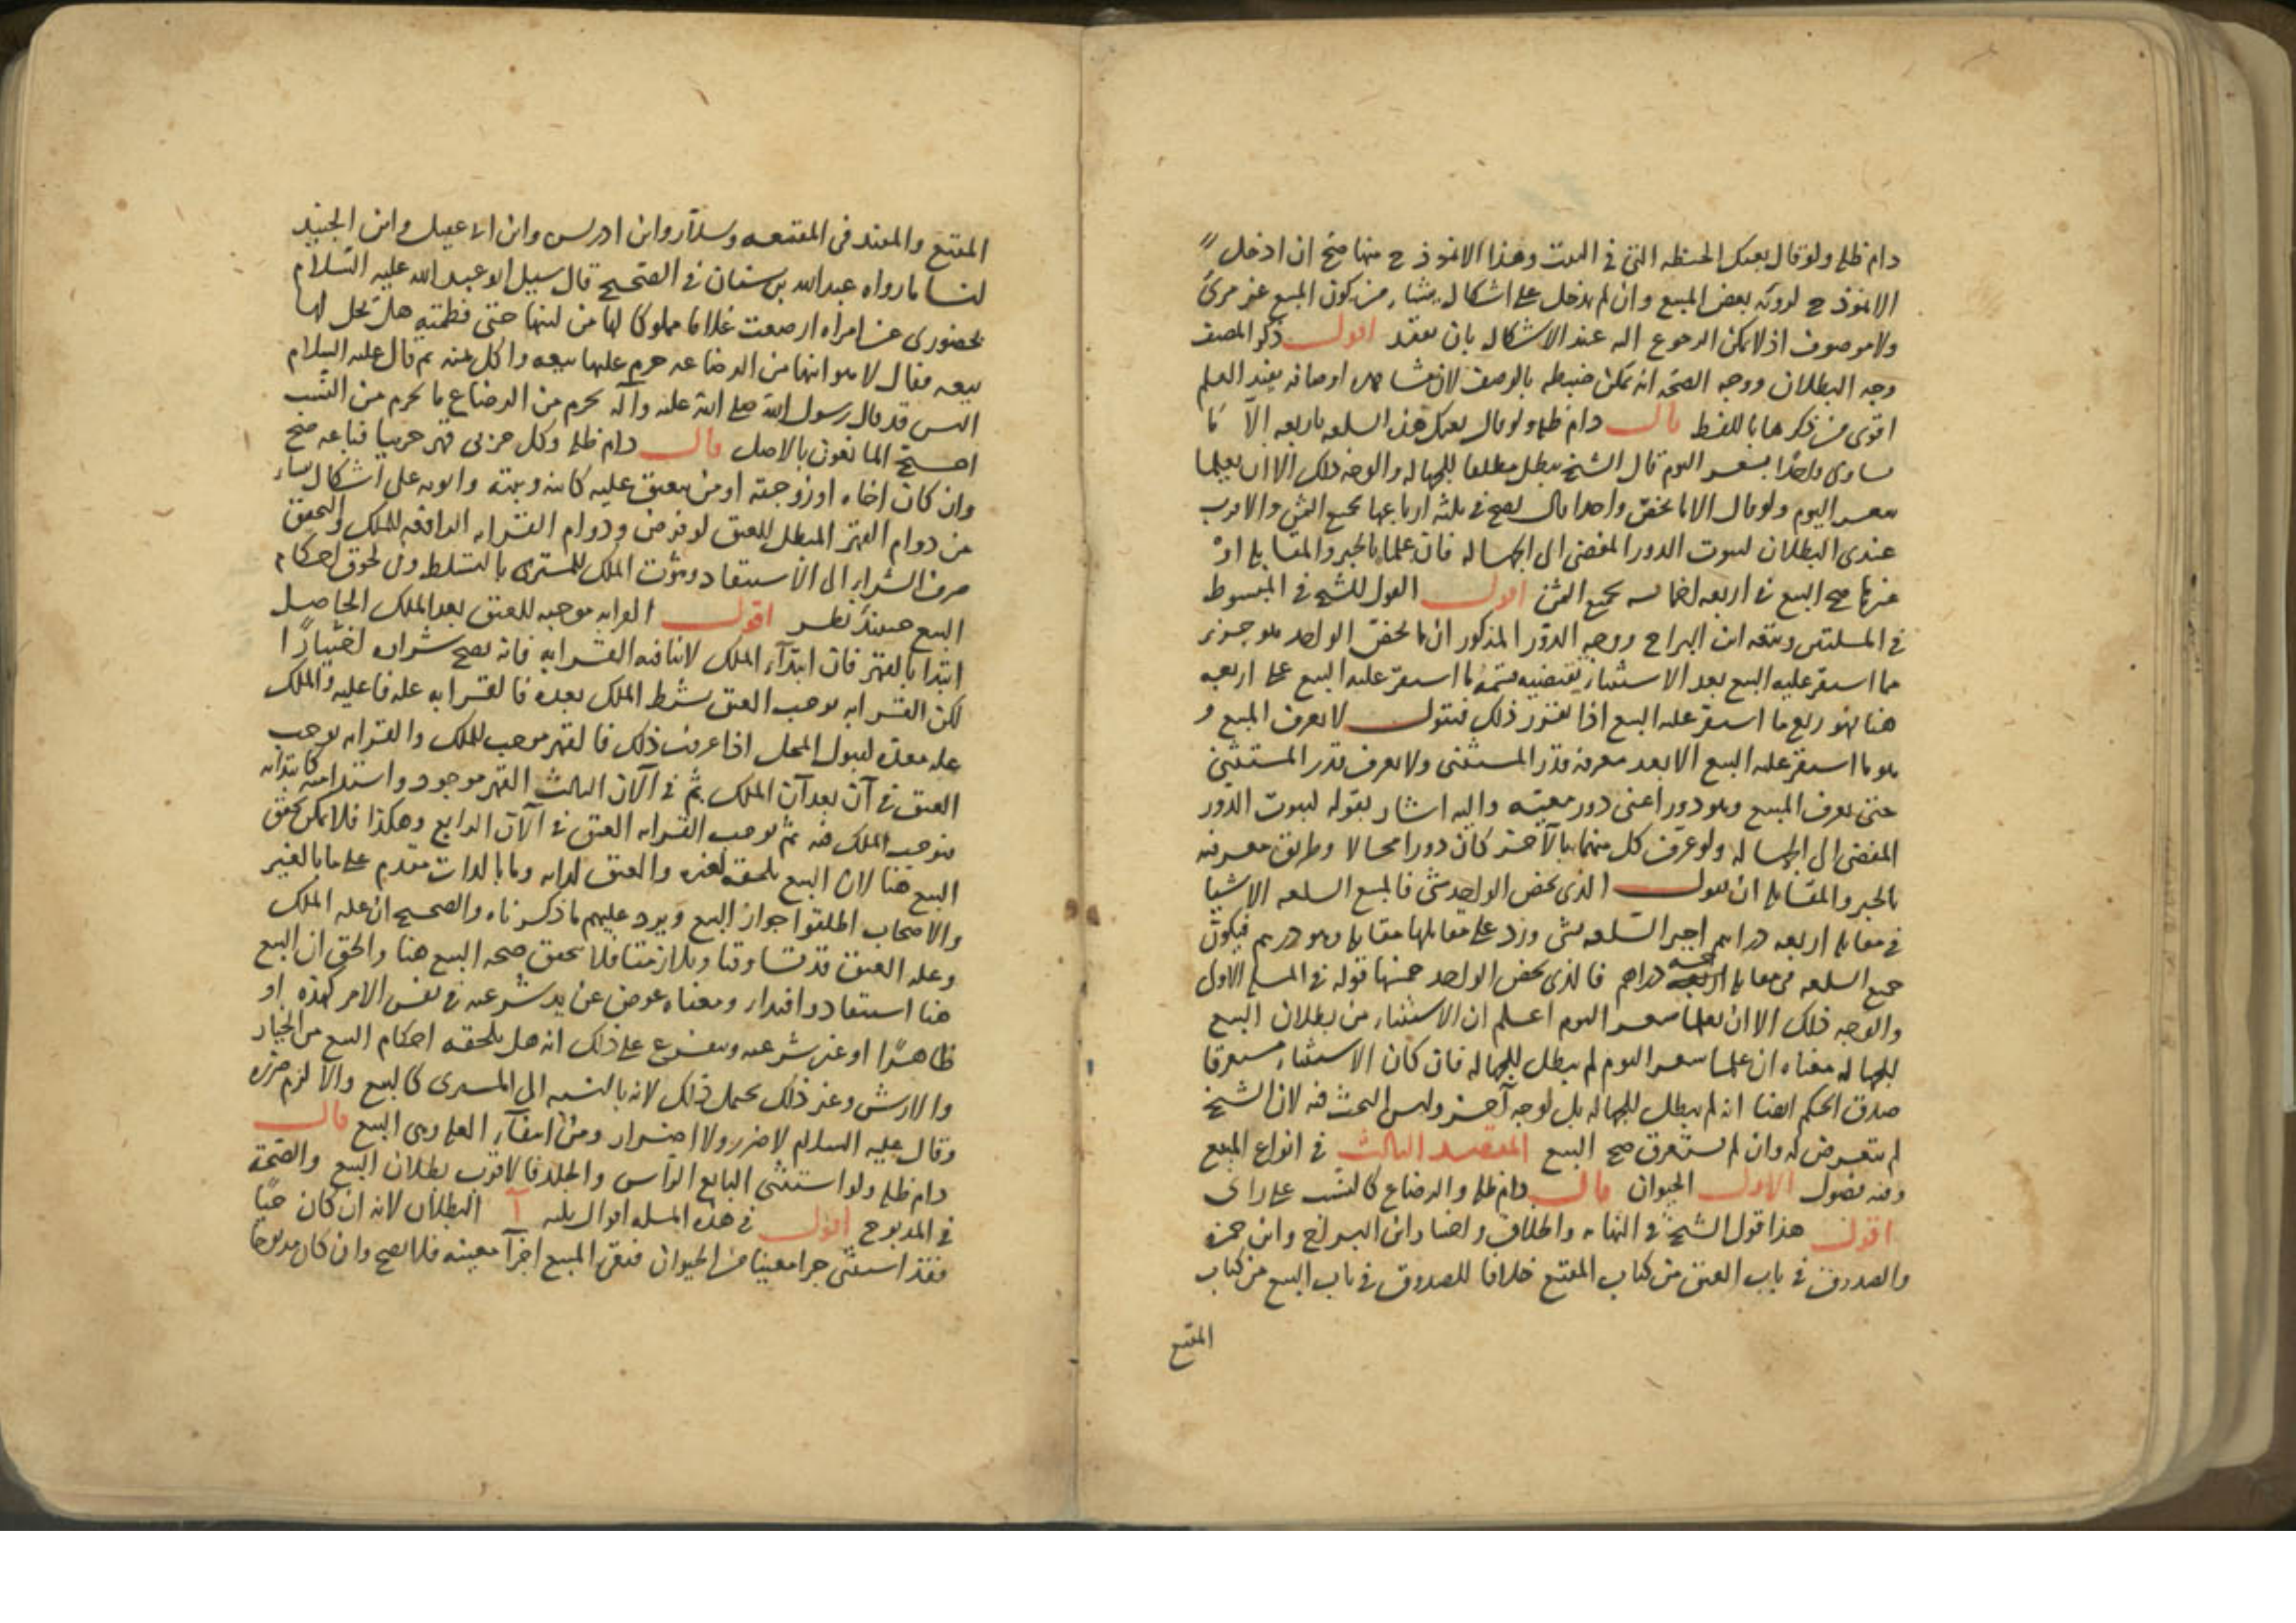 دام ظله ولو قال بعتك الحنطة التي في البيت وهذا الانموذج منها صح ان ادخل
الانموذج لرؤية بعض المبيع وان لم يدخل على اشكال ينشأ من كون المبيع غير مرئى
ولا موصوف اذ لا يمكن الرجوع اليه عند الاشكال بان يفقد اقول ذكر المصنف
وجه البطلان ووجه الصحة انه يمكن ضبطه بالوصف لان مشاهدة اوصافه يفيد العلم
اقوى من ذكرها باللفظ قال دام ظله ولو قال بعتك هذه السلعة باربعة الا ما
يساوى واحدا بسعر اليوم قال الشيخ يبطل مطلقا للجهالة والوجه ذلك الا ان يعلما
سعر اليوم ولو قال الا ما يخص واحدا قال يصح في ثلثة ارباعها بجميع الثمن والاقرب
عندى البطلان لثبوت الدور المفضى الى الجهالة فان علماه بالجبر والمقابلة او
غيرهما صح البيع في اربعة اخماسه بجميع الثمن اقول القول للشيخ في المبسوط
في المسئلتين وتبعه ابن البراج ووجه الدور المذكور ان ما يخص الواحد هو جزء
مما استقر عليه البيع بعد الاستثناء يقتضيه قسمة ما استقر عليه البيع على اربعة
هنا فهو ربع ما استقر عليه البيع اذا تقرر ذلك فنقول لا يعرف المبيع و
هو ما استقر عليه البيع الا بعد معرفة قدر المستثنى ولا يعرف قدر المستثنى
حتى يعرف المبيع وهو دور اعنى دور معية واليه اشار بقوله لثبوت الدور
المفضى الى الجهالة ولو عرف كل منهما بالآخر كان دورا محالا وطريق معرفته
بالجبر والمقابلة ان نقول الذى يخص الواحد شئ فالمبيع السلعة الا شيئا
في مقابلة اربعة دراهم اجبر السلعة بشئ وزد على مقابلها مقابله وهو درهم فيكون
جميع السلعة في مقابلة خمسة دراهم فالذى يخص الواحد خمسها قوله في المسئلة الاولى
والوجه ذلك الا ان يعلما سعر اليوم اعلم ان الاستثناء من بطلان البيع
للجهالة معناه ان علما سعر اليوم لم يبطل للجهالة فان كان الاستثناء مستغرقا
صدق الحكم ايضا انه لم يبطل للجهالة بل لوجه آخر وليس البحث فيه لان الشيخ
لم يتعرض له وان لم يستغرق صح البيع المقصد الثالث في انواع المبيع
وفيه فصول الاول الحيوان قال دام ظله والرضاع كالنسب على راى
اقول هذا قول الشيخ في النهاية والخلاف واختاره ابن البراج وابن حمزة
والصدوق في باب العتق من كتاب المقنع خلافا للصدوق في باب البيع من كتاب
المقنع
المقنع والمفيد في المقنعه وسلار وابن ادريس وابن ابى عقيل وابن الجنيد
لنا ما رواه عبد الله بن سنان في الصحيح قال سيل ابو عبد الله عليه السلام
بحضورى عن امراه ارضعت غلاما مملوكا لها من لبنها حتى فطمته هل يحل لها
بيعه فقال لا هو ابنها من الرضاعه حرم عليها بيعه واكل ثمنه ثم قال عليه السلام
اليس قد قال رسول الله صلى الله عليه وآله يحرم من الرضاع ما يحرم من النسب
احتج المانعون بالاصل قال دام ظله وكل حربى قهر حربيا فباعه صح
وان كان اخاه او زوجته او من ينعتق عليه كابنه وبنته وابويه على اشكال ينشأ
من دوام القهر المبطل للعتق لو فرض ودوام القرابه الرافعه للملك والتحقيق
صرف الشراء الى الاستنقاذ وثبوت الملك للمشترى بالتسلط وفى لحوق احكام
البيع حينئذ نظر اقول القرابه موجبه للعتق بعد الملك الحاصل
ابتدا بالقهر فان ابتداء الملك لا ينافيه القرابه فانه يصح شراءه اختيارا
لكن القرابه توجب العتق بشرط الملك بعده فالقرابه علة فاعليه والملك
علة معده لقبول المحل اذا عرفت ذلك فالقهر موجب للملك والقرابه توجب
العتق في آن بعد آن الملك ثم في الآن الثالث القهر موجود واستدامته كابتدائه
فيوجب الملك فيه ثم توجب القرابه العتق في الآن الرابع وهكذا فلا يمكن تحقق
البيع هنا لان البيع يلحقه لغيره والعتق لذاته وما بالذات مقدم على ما بالغير
والاصحاب اطلقوا جواز البيع ويرد عليهم ما ذكرناه والصحيح ان علة الملك
وعلة العتق قد تساوتا وتلازمتا فلا تحقق صحة البيع هنا والحق ان البيع
هنا استنقاذ وافتداء ومعناه عوض عن يد شرعيه في نفس الامر كهذه او
ظاهرا او غير شرعيه ويتفرع على ذلك انه هل يلحقه احكام البيع من الخيار
والارش وغير ذلك يحتمل ذلك لانه بالنسبه الى المشترى كالبيع والا لزم ضرره
وقال عليه السلام لا ضرر ولا اضرار ومن انتفاء العلة وهى البيع قال
دام ظله ولو استثنى البايع الراس والجلد فالاقرب بطلان البيع والصحة
في المذبوح اقول في هذه المسئلة اقوال ثلثه آ البطلان لانه ان كان حيا
فقد استثنى جزا معينا من الحيوان فبقى المبيع اجزآ معينه فلا يصح وان كان مذبوحا